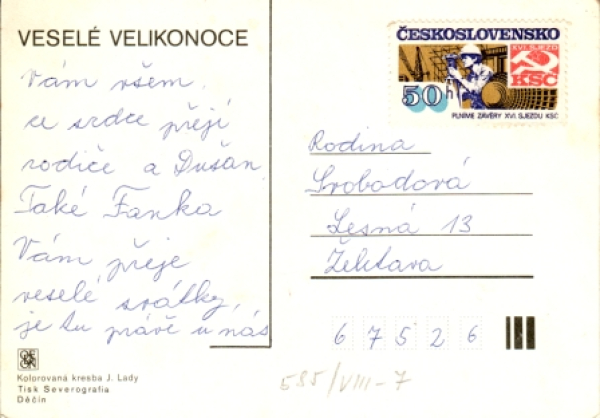 VESELÉ VELIKONOCE
Vám všem,
ze srdce přejí
rodiče a Dušan
Také Fanka
Vám přeje
veselé svátky,
je tu právě u nás
Kolorovaná kresba J. Lady
Tisk Severografia
Děčín
ČESKOSLOVENSKO
XVI. SJEZD
KSČ
50h
PLNÍME ZÁVĚRY XVI. SJEZDU KSČ
Rodina
Svobodová
Lesná 13
Želetava
6 7 5 2 6
595/VIII-7